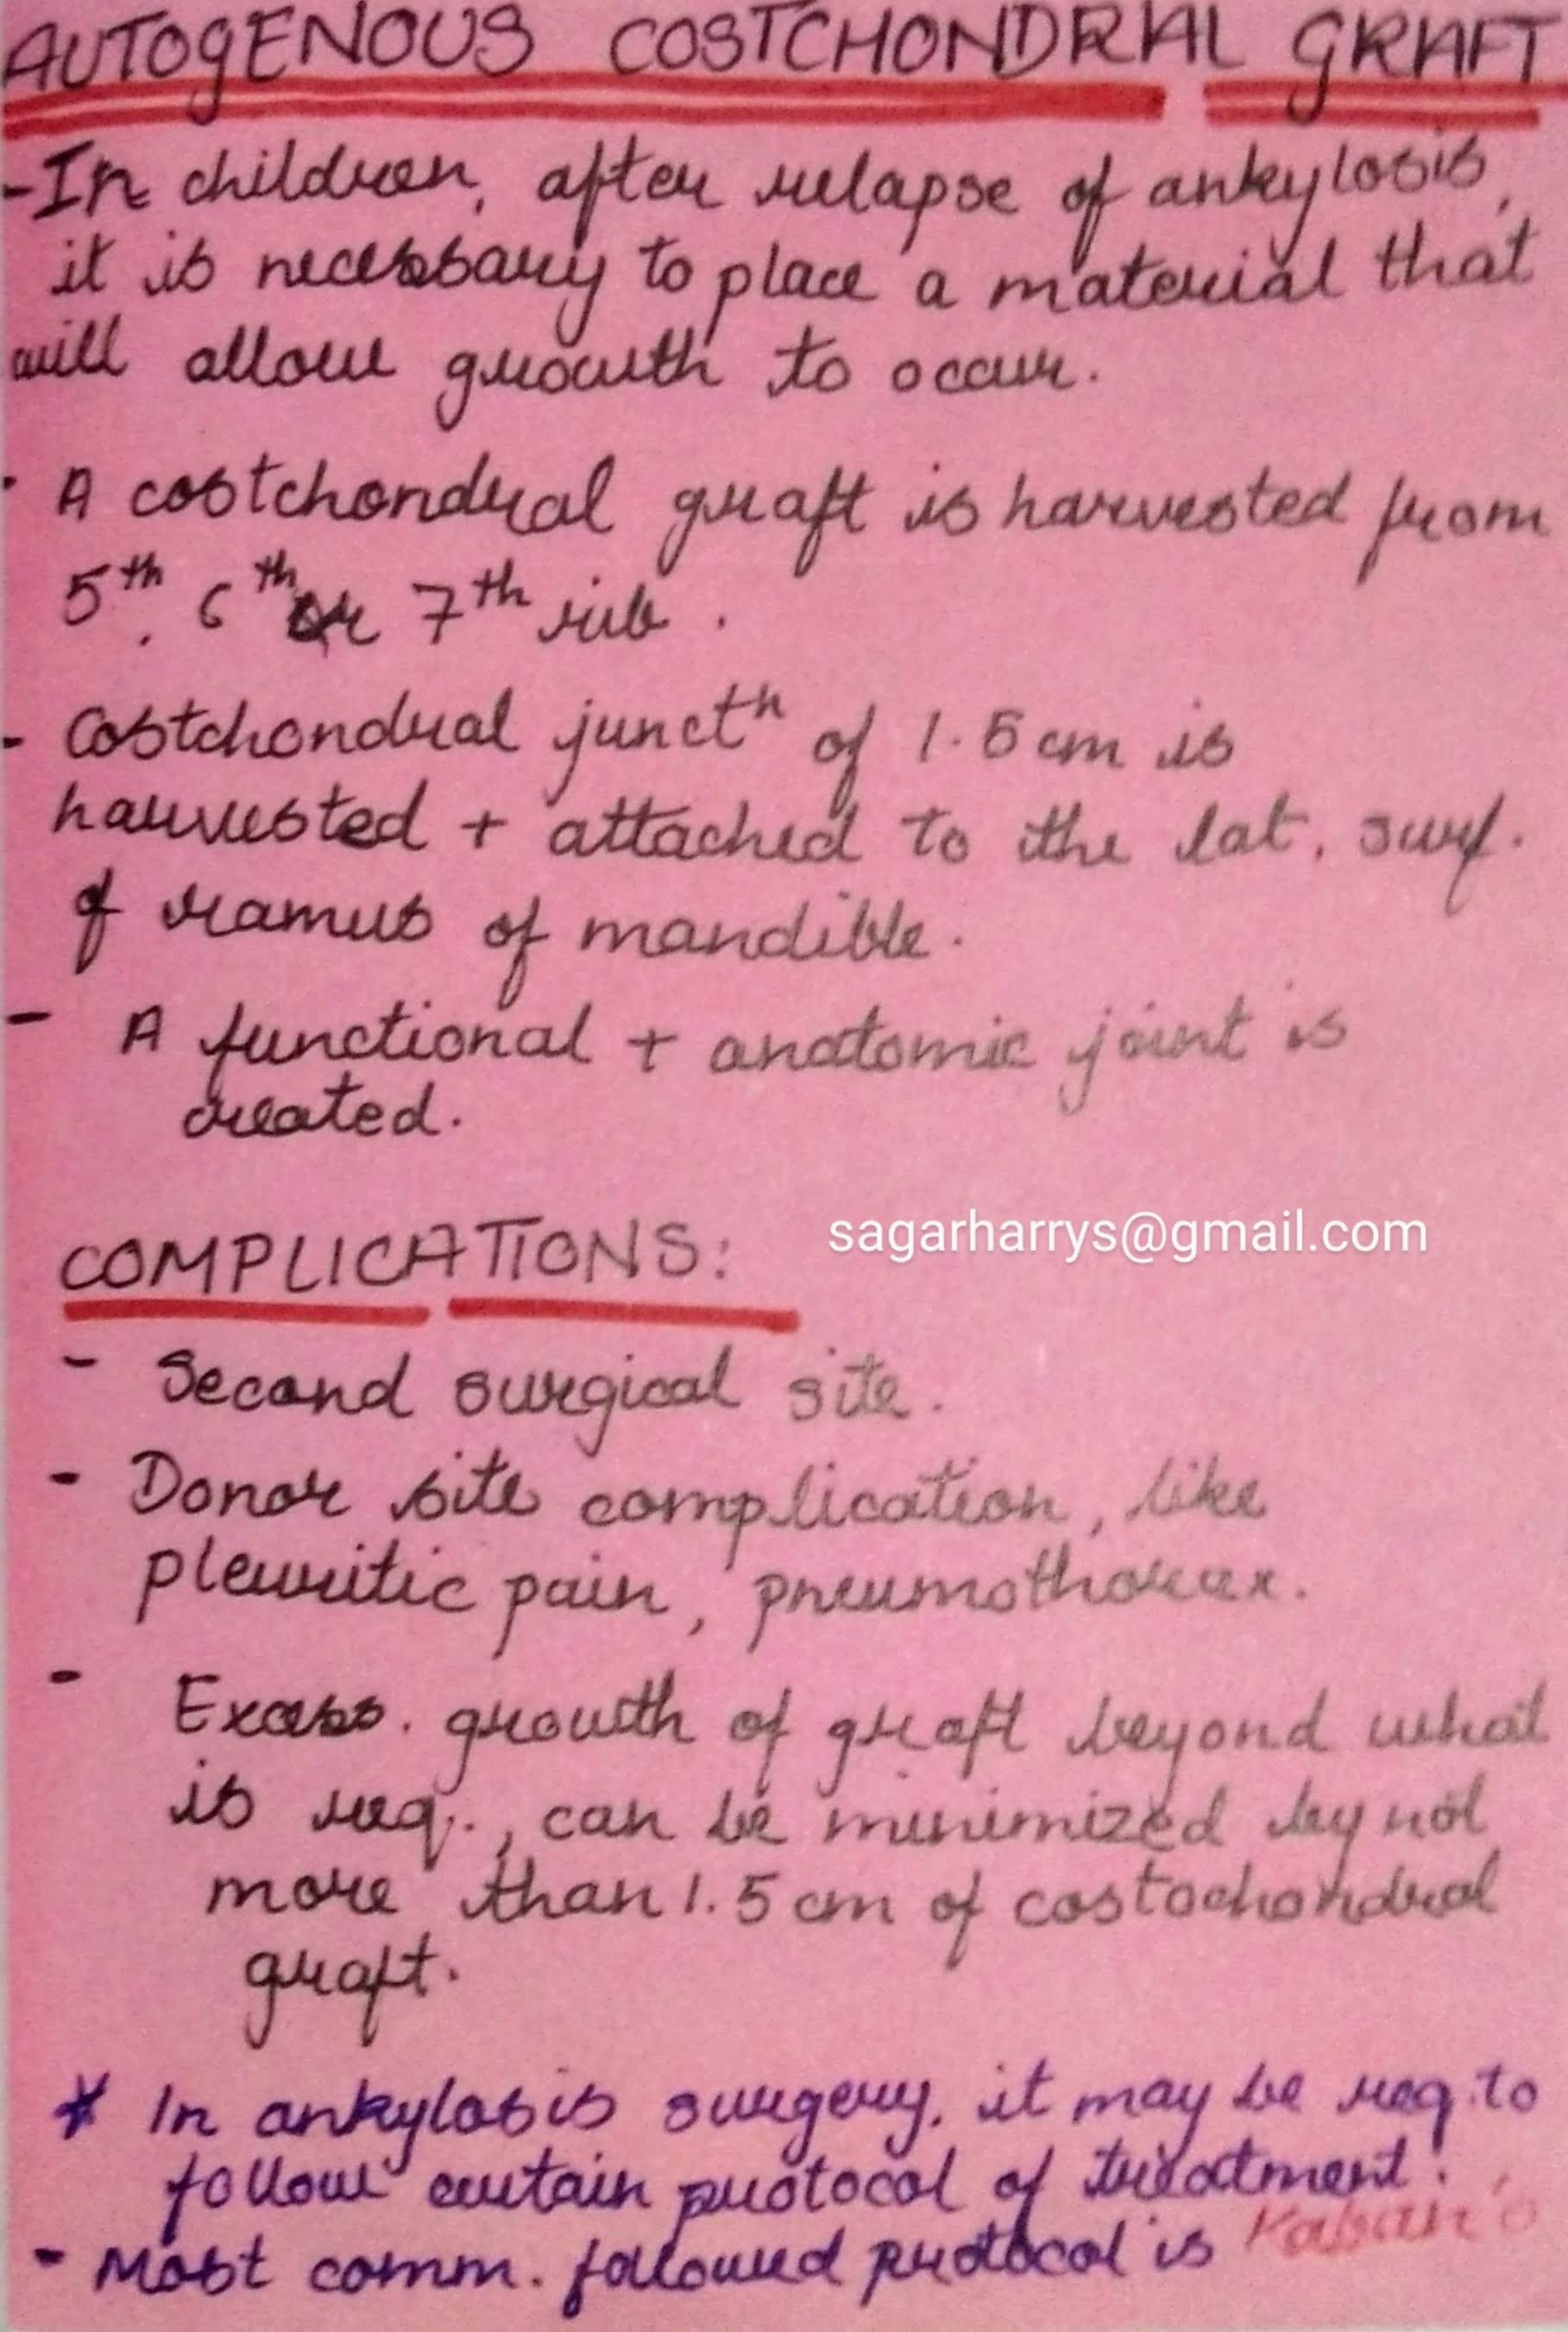 AUTOGENOUS COSTCHONDRAL GRAFT
- In children, after relapse of ankylosis,
it is necessary to place a material that
will allow growth to occur.
- A costchondral graft is harvested from
5th, 6th or 7th rib.
- Costchondral junctn of 1.5 cm is
harvested + attached to the lat. surf.
of ramus of mandible.
- A functional + anatomic joint is
created.
COMPLICATIONS:
sagarharrys@gmail.com
- Second surgical site.
- Donor site complication, like
pleuritic pain, pneumothorax.
- Excess. growth of graft beyond what
is req., can be minimized by not
more than 1.5 cm of costochondral
graft.
* In ankylosis surgery, it may be req. to
follow certain protocol of treatment.
- Most comm. followed protocol is Kaban's